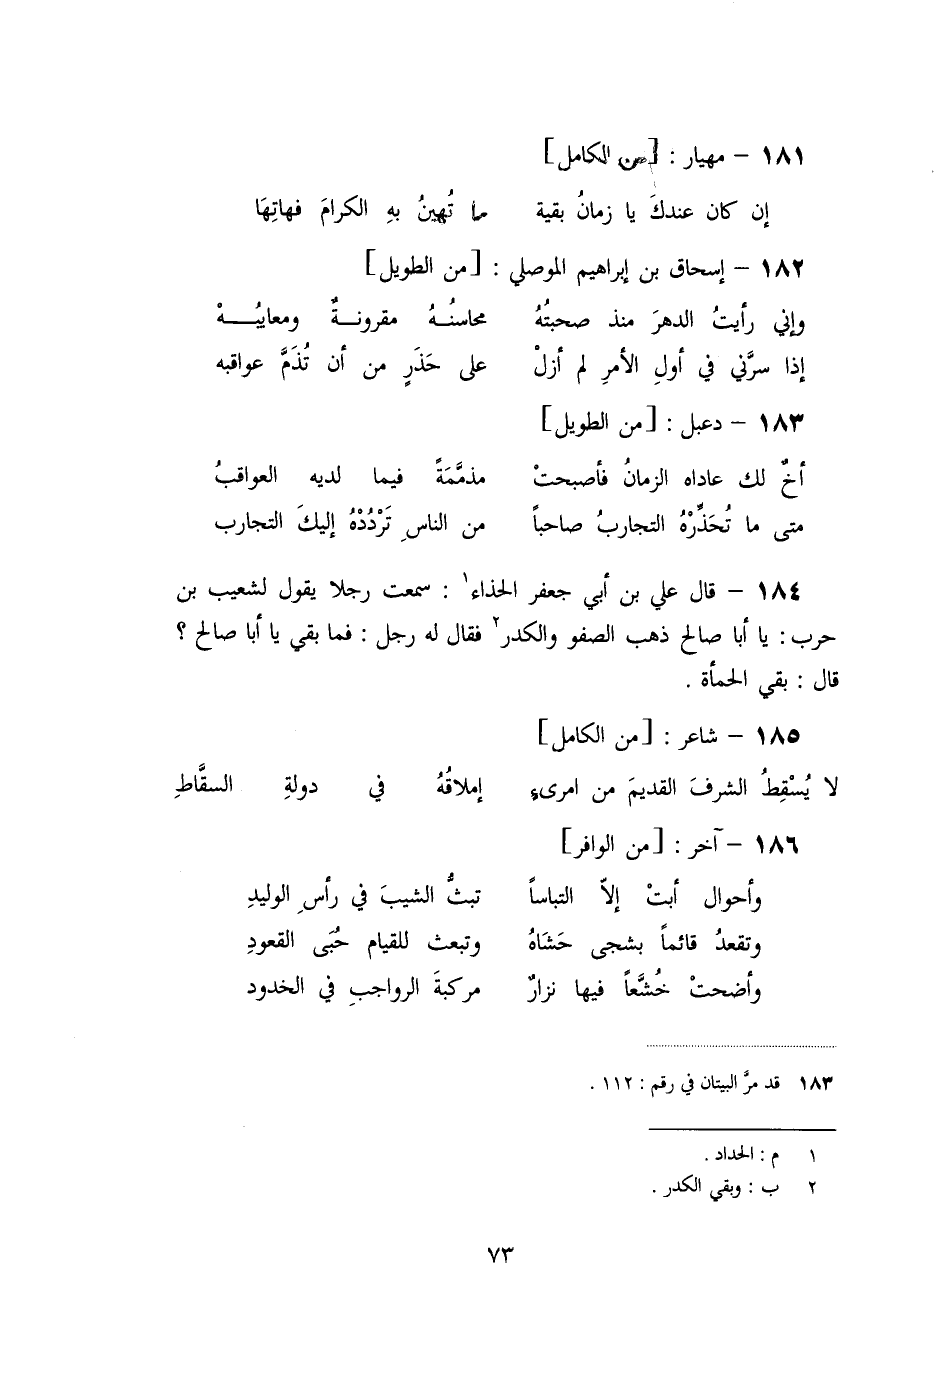 ١٨١ – مهيار : [من الكامل]
إن كان عندكَ يا زمانُ بقية ما تُهينُ بهِ الكرامَ فهاتِهَا
١٨٢ – إسحاق بن إبراهيم الموصلي : [من الطويل]
وإني رأيتُ الدهرَ منذ صحبتُهُ محاسنُـهُ مقرونـةٌ ومعايبُـــهْ
إذا سرَّني في أولِ الأمرِ لم أزلْ على حَذَرٍ من أن تُذَمَّ عواقبه
١٨٣ – دعبل : [من الطويل]
أخٌ لك عاداه الزمانُ فأصبحتْ مذمَّمَةً فيما لديه العواقبُ
متى ما تُحَذِّرْهُ التجاربُ صاحباً من الناسِ تَرْدُدْهُ إليكَ التجارب
١٨٤ – قال علي بن أبي جعفر الحذاء١ : سمعت رجلا يقول لشعيب بن
حرب : يا أبا صالح ذهب الصفو والكدر٢ فقال له رجل : فما بقي يا أبا صالح ؟
قال : بقي الحمأة .
١٨٥ – شاعر : [من الكامل]
لا يُسْقِطُ الشرفَ القديمَ من امرىءٍ إملاقُهُ في دولةِ السقَّاطِ
١٨٦ – آخر : [من الوافر]
وأحوال أبتْ إلاّ التباساً تبثُّ الشيبَ في رأسِ الوليدِ
وتقعدُ قائماً بشجى حَشَاهُ وتبعث للقيام حُبَى القعودِ
وأضحتْ خُشَّعاً فيها نزارٌ مركبةَ الرواجبِ في الخدود
١٨٣ قد مرَّ البيتان في رقم : ١١٢ .
١ م : الحداد .
٢ ب : وبقي الكدر .
٧٣